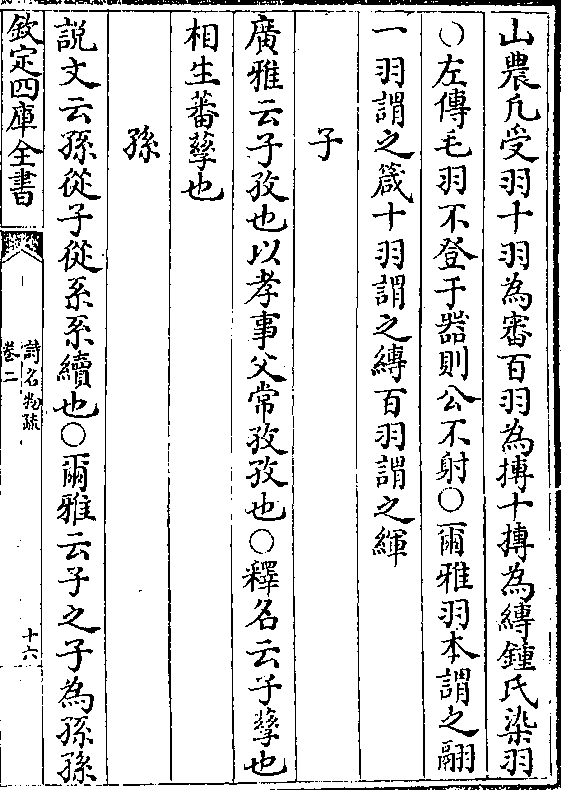 山農凡受羽十羽為審百羽為摶十摶為縳鍾氏染羽
○左傳毛羽不登于器則公不射○爾雅羽本謂之翮
一羽謂之箴十羽謂之縳百羽謂之緷
子
廣雅云子孜也以孝事父常孜孜也○釋名云子孳也
相生蕃孳也
孫
説文云孫從子從系系續也○爾雅云子之子為孫孫
欽定四庫全書
詩名物疏
卷二
十六